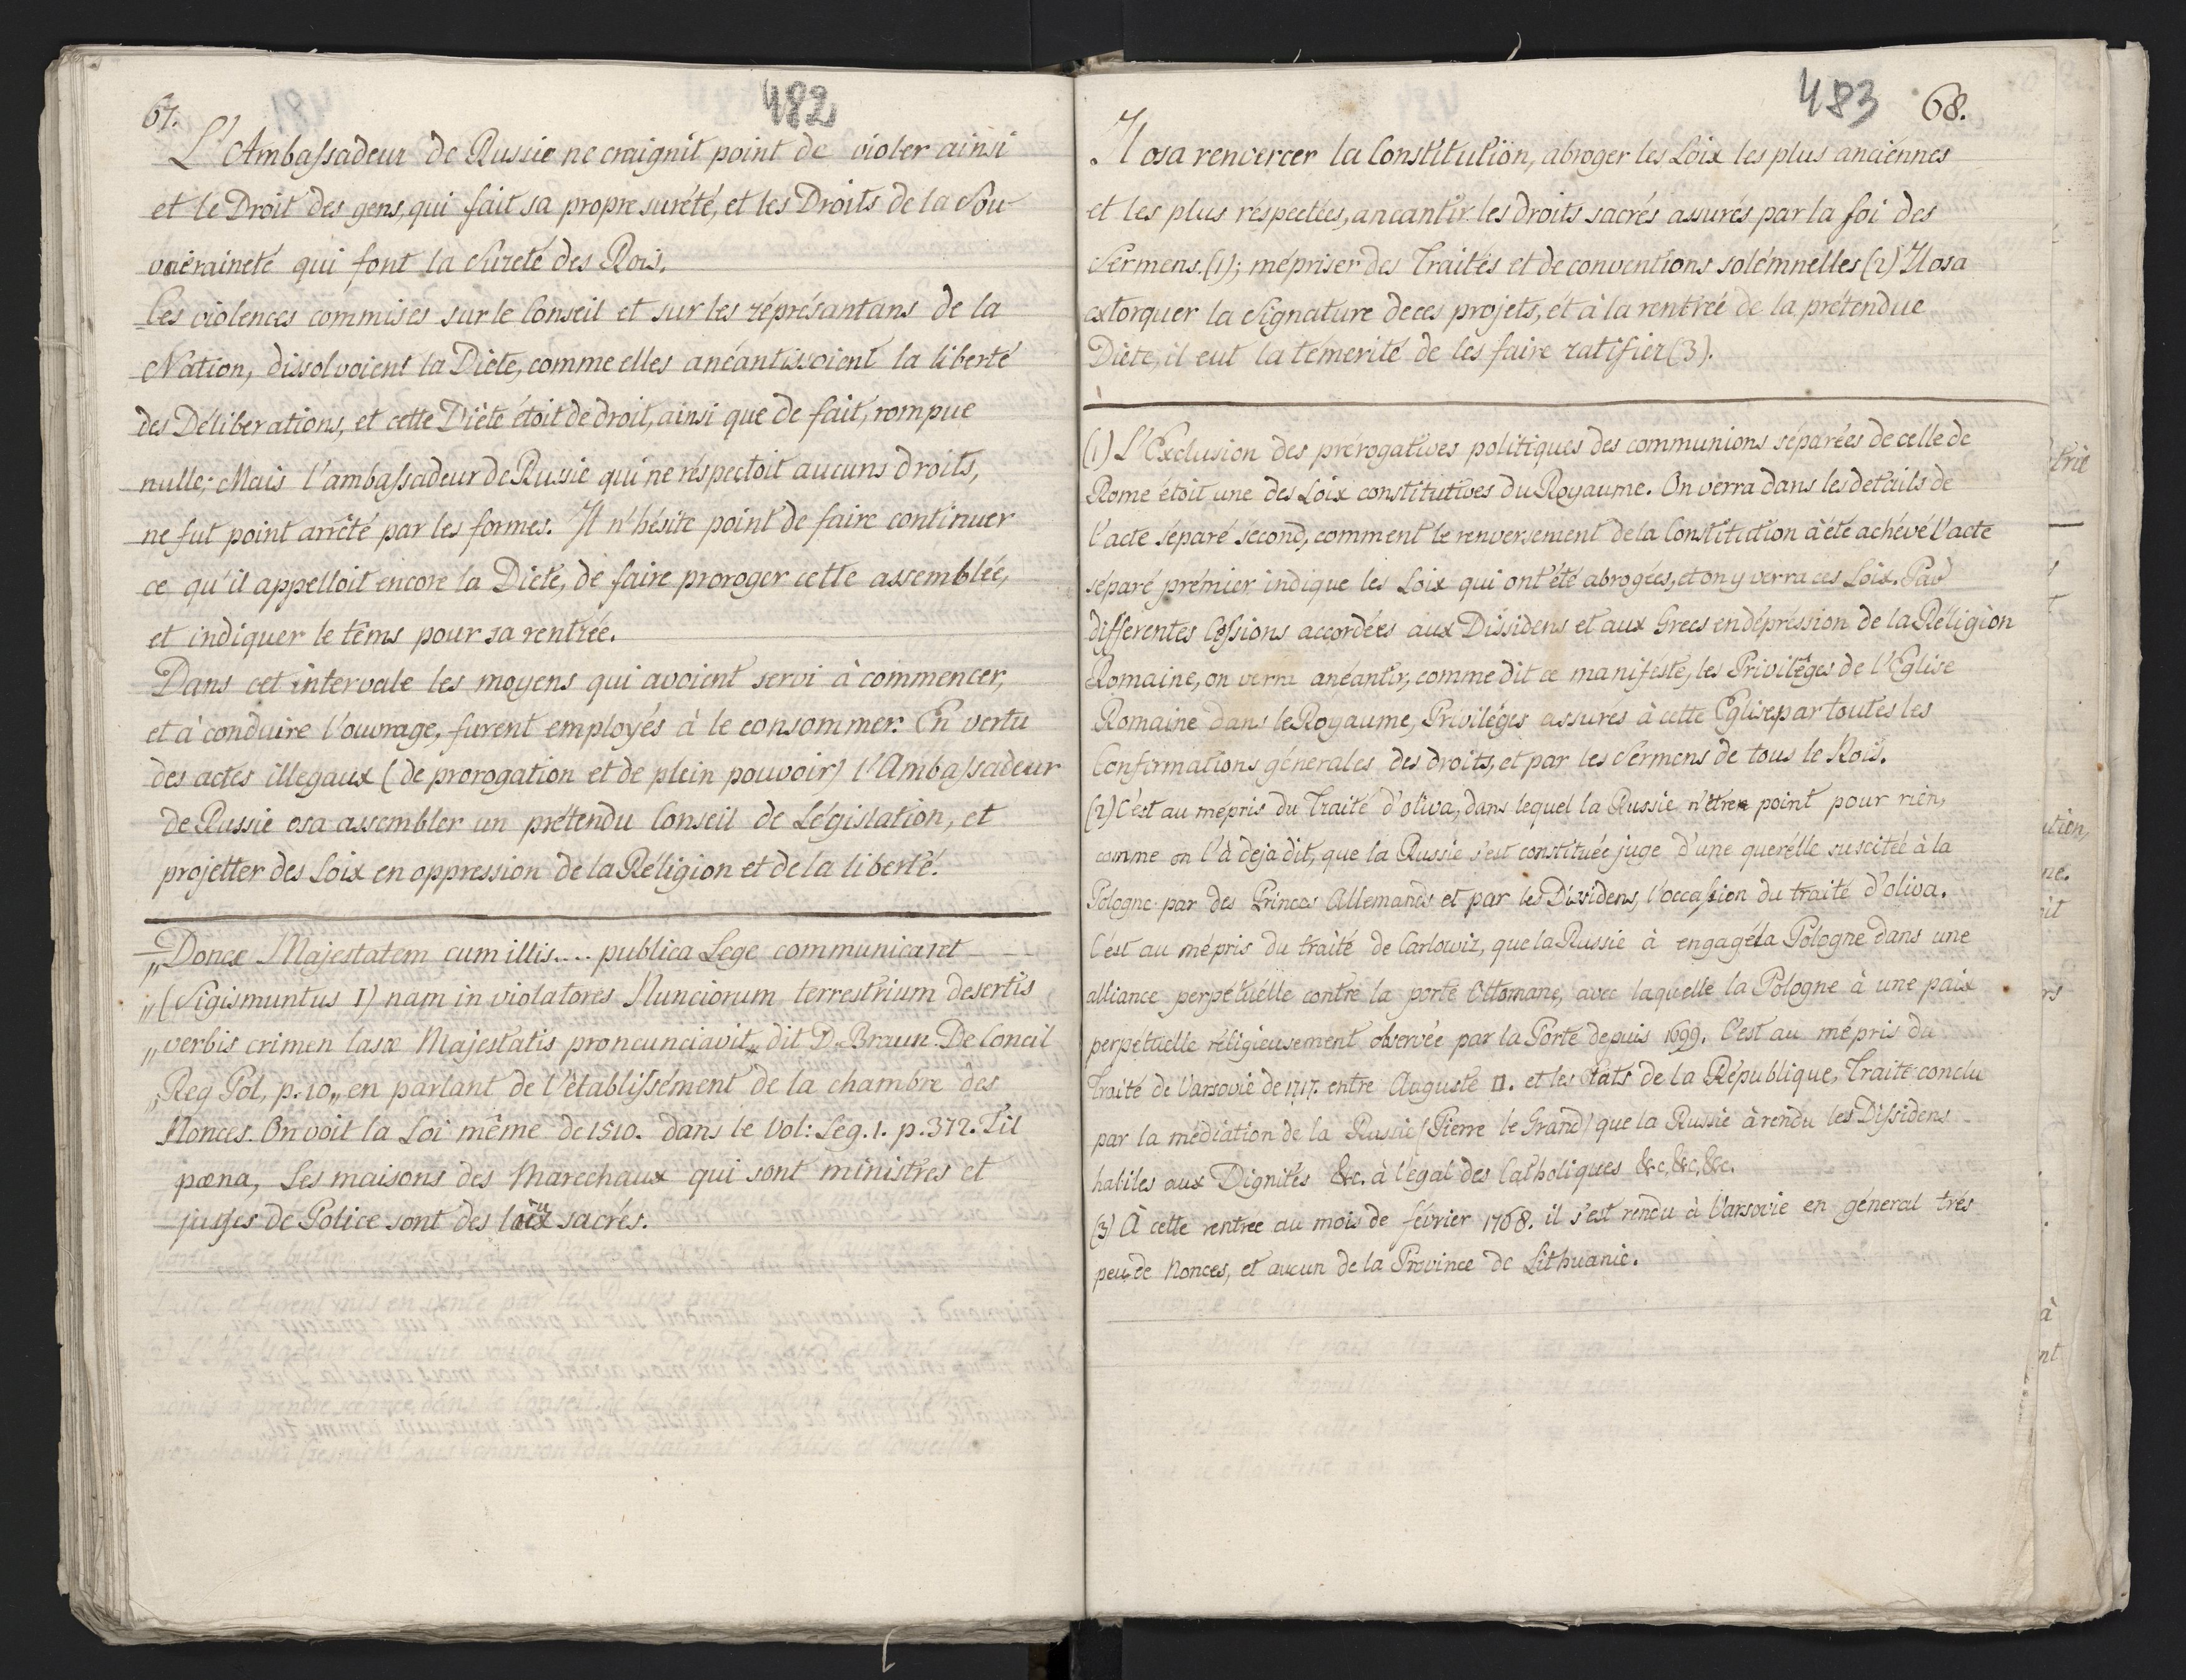 67.
482
L'Ambassadeur de Russie ne craignit point de violer ainsi
et le Droit des gens, qui fait sa propre surété, et les Droits de la Sou
vaeraineté qui font la Sureté des Rois.
Ces violences commises sur le Conseil et sur les réprésantans de la
Nation, dissolvoient la Diète, comme elles anéantissoient la liberté
des Déliberations, et cette Diète étoit de droit, ainsi que de fait, rompue
nulle: Mais l'ambassadeur de Russie qui ne réspectoit aucuns droits,
ne fut point arrêté par les formes. Il n'hésite point de faire continuer
ce qu'il appelloit encore la Diète, de faire proroger cette assemblée,
et indiquer le têms pour sa rentrée.
Dans cet intervale les moyens qui avoient servi à commencer,
et à conduire l'ouvrage, furent employés à le consommer. En vertu
des actes illegaux (de prorogation et de plein pouvoir) l'Ambassadeur
de Russie osa assembler un prétendu Conseil de Législation, et
projetter des Loix en oppression de la Réligion et de la liberté.
„Donce Majestatem cum illis.... publica Lege communicaret
„(Sigismuntus I) nam in violatores Nunciorum terrestrium desertis
„verbis crimen lasæ Majestatis proncunciavit„ dit D. Braun De Concil
„Reg Pol, p. 10„ en parlant de l'établissément de la chambre des
Nonces. On voit la Loi même de 1510. dans le Vol: Leg. 1. p. 372. Tit
pœna, Les maisons des Marechaux qui sont ministres et
juges de Police sont des lieux sacrés.
483 68.
Il osa renverser la Constitution, abroger les Loix les plus anciénnes
et les plus réspectées, ancantir les droits sacrés assurés par la foi des
Sermens. (1); mépriser des Traités et de conventions solémnelles (2) Il osa
extorquer la Signature de ces projets, ét à la rentrée de la prétendue
Diète, il eut la témerité de les faire ratifier (3).
(1) L'Exclusion des prérogatives politiques des communions séparées de celle de
Rome étoit une des Loix constitutives du Royaume. On verra dans les details de
l'acte séparé sécond, comment le renversement de la Constitution à été achévé l'acte
séparé prémier indique les Loix qui ont été abrogées, et on y verra ces Loix. Par
differentes Cessions accordées aux Dissidens et aux Grecs en dépréssion de la Réligion
Romaine, on verra anéantir, comme dit ce manifeste, les Priviléges de l'Eglise
Romaine dans le Royaume, Priviléges assurés à cette Eglise par toutes les
Confirmations génerales des droits, et par les Sermens de tous le Rois.
(2) C'est au mépris du Traité d'oliva, dans lequel la Russie n'etre point pour rién,
comme on l'à deja dit, que la Russie s'est constituée juge d'une querélle suscitée à la
Pologne par des Princes Allemands et par les Dissidens, l'occasion du traité d'oliva.
C'est au mépris du traité de Carlowiz, que la Russie à engagé la Pologne dans une
alliance perpétuélle contre la porte Ottomane, avec laquelle la Pologne à une paix
perpétuelle réligieusement observée par la Porte depuis 1699. C'est au mépris du
Traité de Varsovie de 1717. entre Auguste II. et les Etats de la République, Traite conclu
par la médiation de la Russie (Pierre le Grand) que la Russie à rendu les Dissidens
habiles aux Dignités &c. à l'egal des Catholiques &c, &c, &c.
(3) À cette rentrée au mois de février 1768. il s'est rendu à Varsovie en géneral trés
peu de Nonces, et aucun de la Province de Lithuanie.